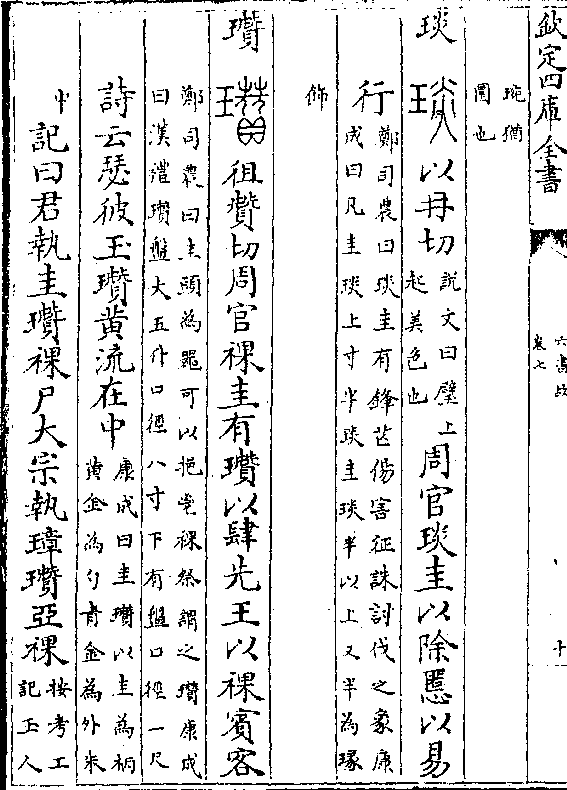 欽定四庫全書
六書故
卷七
十
琬猶
圜也
琰
以冉切
說文曰璧上
起美色也
周官琰圭以除慝以易
行
鄭司農曰琰圭有鋒芒傷害征誅討伐之象康
成曰凡圭琰上寸半琰圭琰半以上又半為瑑
飾
瓚
徂贊切周官祼圭有瓚以肆先王以祼賓客
鄭司農曰圭頭為器可以挹鬯祼祭謂之瓚康成
曰漢禮瓚盤大五升口徑八寸下有盤口徑一尺
詩云瑟彼玉瓚黄流在中
康成曰圭瓚以圭為柄
黄金為勺青金為外朱
中
記曰君執圭瓚祼尸大宗執璋瓚亞祼
按考工
記玉人